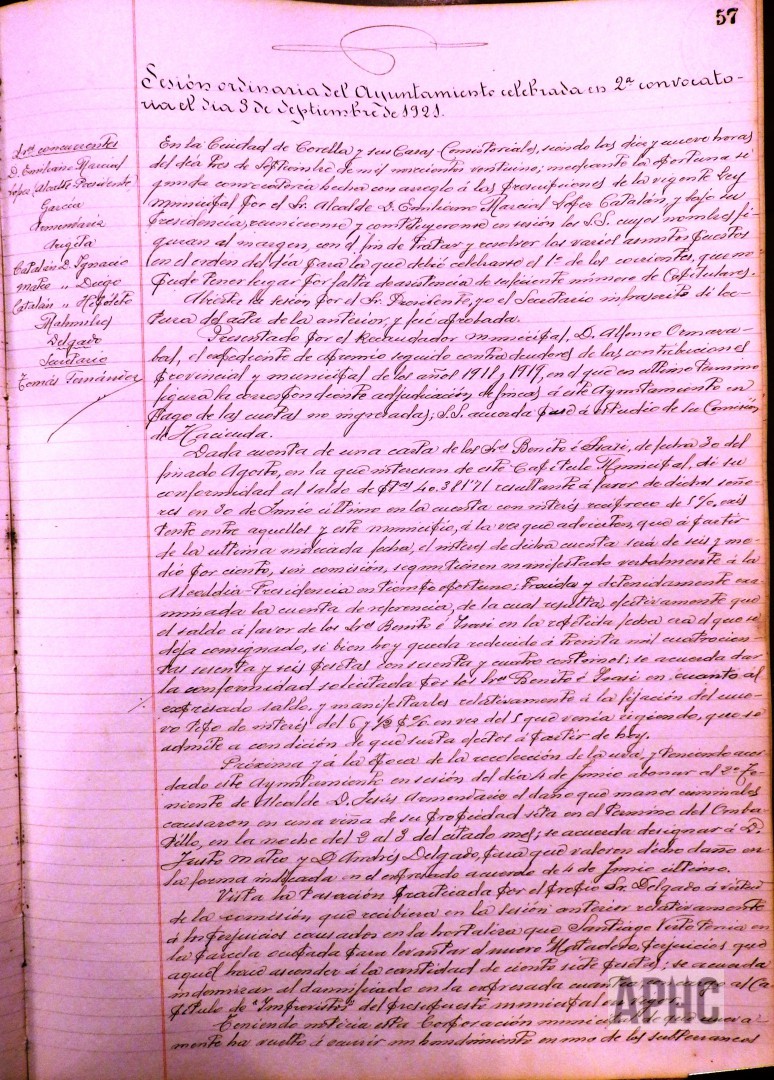 57
Sesión ordinaria del Ayuntamiento celebrada en 2ª convocato-
ria el día 3 de Septiembre de 1921.
Sres concurrentes
D. Emiliano Marcial
López (Alcalde Presidente)
García
Armendáriz
Argüta
Catalán D. Ignacio
Mateo " Diego
Catalán " Hipólito
Malumbres
Delgado
Secretario
Tomás Fernández
En la Ciudad de Corella y sus Casas Consistoriales, siendo las diez y nueve horas
del día tres de Septiembre de mil novecientos veintiuno; mediante la oportuna se-
gunda convocatoria hecha con arreglo á las prescripciones de la vigente Ley
municipal por el Sr. Alcalde D. Emiliano Marcial López Catalán, y bajo su
Presidencia, reuniéronse y constituyeronse en sesión los S.S. cuyos nombres fi-
guran al margen, con el fin de tratar y resolver los varios asuntos puestos
en el orden del día para la que debió celebrarse el 1º de los corrientes, que no
pudo tener lugar por falta de asistencia de suficiente número de Capitulares.
Abierta la sesión por el Sr. Presidente, yo el Secretario infrascrito dí lec-
tura del acta de la anterior y fué aprobada.
Presentado por el Recaudador municipal, D. Alfonso
bal, el expediente de apremio seguido contra deudores de las contribuciones
provincial y municipal de los años 1918 y 1919, en el que en último término
figura la correspondiente adjudicación de fincas á este Ayuntamiento en
pago de las cuotas no ingresadas; S.S. acuerda pase á estudio de su Comisión
de Hacienda.
Dada cuenta de una carta de los Sres Benito é Irari, de fecha 30 del
finado Agosto, en la que interesan de este Capítulo Municipal, dé su
conformidad al saldo de Ptas 40.381'71 resultante á favor de dichos seño-
res en 30 de Junio último en la cuenta con interés recíproco de 5%, exis-
tente entre aquellos y este municipio, á la vez que advierten, que á partir
de la ultima indicada fecha, el interés de dicha cuenta será de seis y me-
dio por ciento, sin comisión, segun tienen manifestado verbalmente á la
Alcaldía-Presidencia en tiempo oportuno; y detenidamente exa-
minada la cuenta de referencia, de la cual resulta efectivamente que
el saldo á favor de los Sres Benito é Irari en la repetida fecha era el que se
deja consignado, si bien hoy queda reducido á treinta mil cuatrocien-
tas sesenta y seis pesetas con y cuatro centimos; se acuerda dar
la conformidad solicitada por los Sres Benito é Irari en cuanto al
expresado saldo, y manifestarles relativamente á la fijación del nue-
vo tipo de interés del 6 y 1/2 p% en vez del 5 que venía rigiendo, que se
admite a condición de que surta efectos á partir de hoy.
Próxima yá la época de la recolección de la uva, y teniendo acor-
dado este Ayuntamiento en sesión del día 4 de Junio abonar al 2º Te-
niente de Alcalde D. Jesús Armendáriz el daño que manos criminales
causaron en una viña de su propiedad sita en el termino del
en la noche del 2 al 3 del citado mes; se acuerda designar á D.
Justo Mateo y D. Andrés Delgado, para que valoren dicho daño en
la forma indicada en el expresado acuerdo de 4 de Junio último.
Vista la tasación practicada por el propio Sr. Delgado á virtud
de la comisión, que recibiera en la sesión anterior relativamente
á los perjuicios causados en la hortaliza que Santiago tenia en
la parcela ocupada para levantar el nuevo Matadero, perjuicios que
aquel hace ascender á la cantidad de ciento siete pesetas; se acuerda
indemnizar al damnificado en la expresada cuantía, con cargo al Ca-
pítulo de "Imprevistos" del presupuesto municipal en vigor.
Teniendo noticia esta Corporación municipal de que nueva-
mente ha vuelto á ocurrir un hundimiento en uno de los subterraneos
APHC